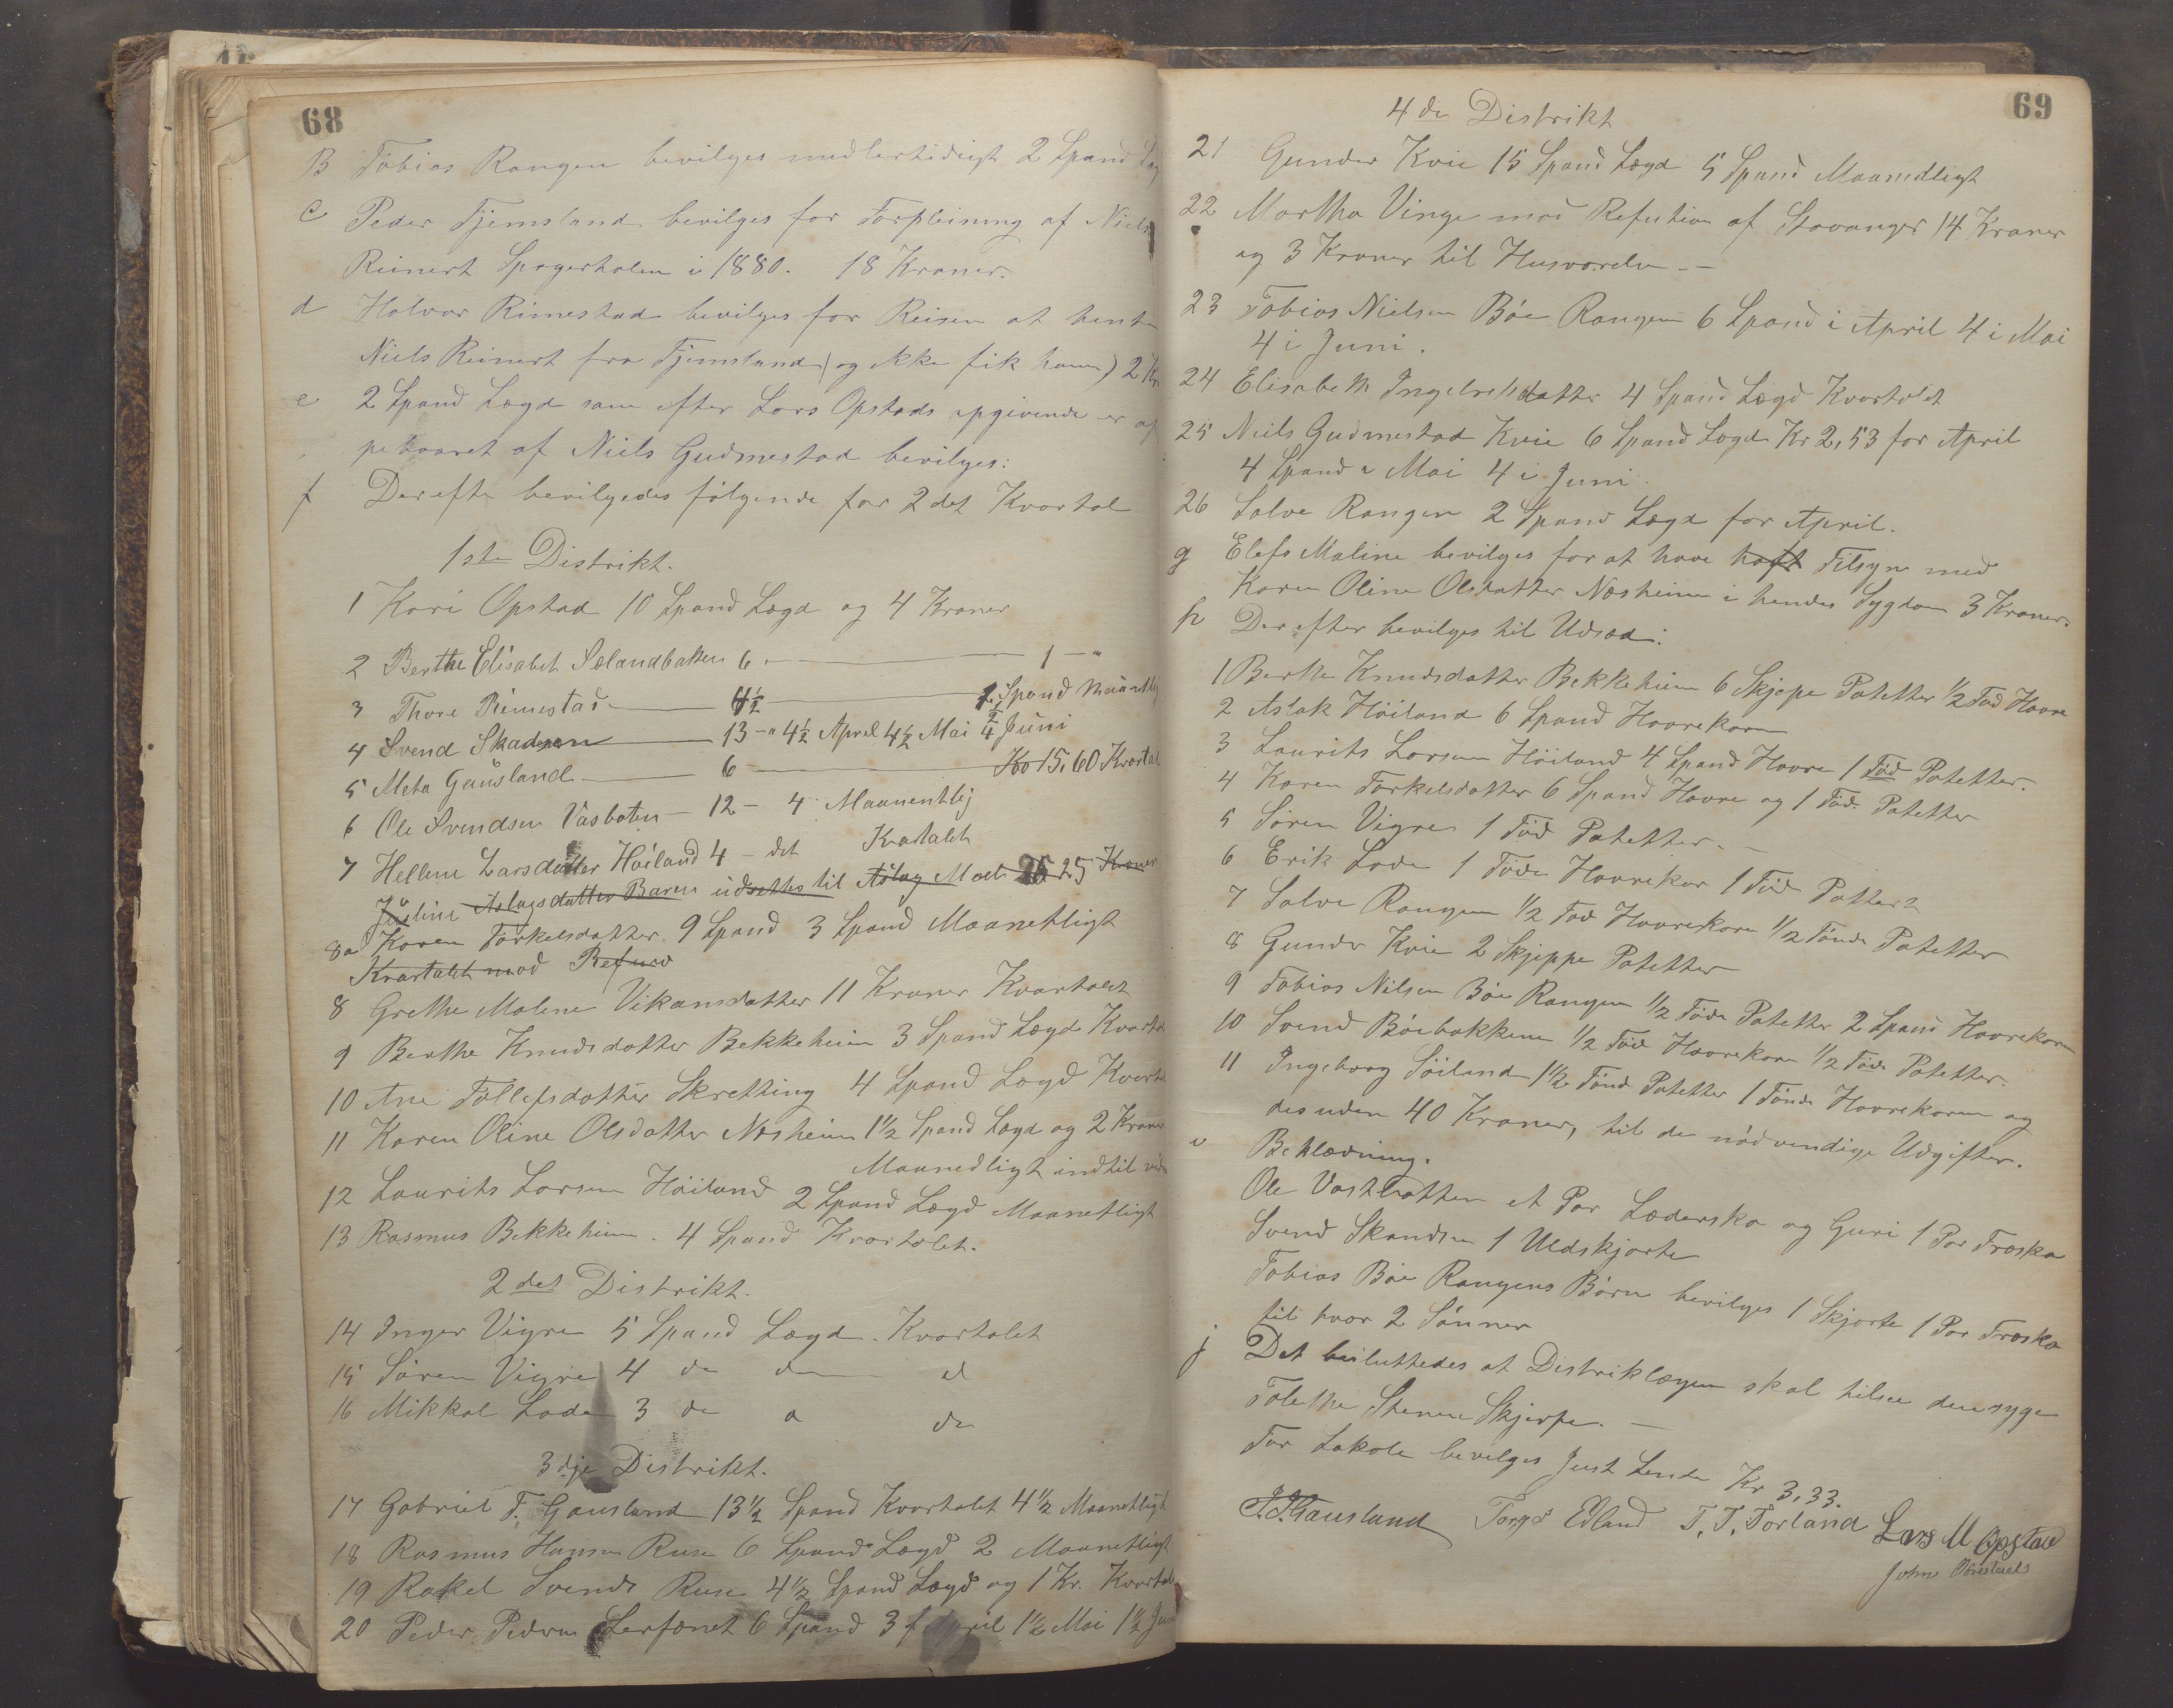 68
B Tobias Rangen bevilges medlertidigt 2 Spand
C Peder Tjemsland bevilges for Forpleining af Niels
Reinert Spogerholen i 1880. 18 Kroner.
d Halvor Rimestad bevilges for Reisen at hente
Niels Reinert fra Tjemsland (og ikke fik ham) 2 Kr
e 2 Spand Lægd som efter Lars Opstads opgivende er
af Niels Gudmestad bevilges:
f Derefter bevilgedes følgende for 2det Kvartal
1ste Distrikt.
1 Kari Opstad 10 Spand Lægd og 4 Kroner
2 Berthe Elisabet Sælandbakken 6 — 1 — "
3 Thore Rimestad — 4½ — Spand Maanetlig
4 Svend Skadsem — 13 — " 4½ April 4½ Mai 4 Juni
5 Meta Gausland — 6 — Kr 15,60 Kvartal
6 Ole Svendsen Vasboten — 12 — 4 Maanentlig
7 Hellene Larsdatter Høiland 4 — det Kvartalet
Juline Aslagsdatter Baren udsettes til Aslag Moe 25 Kroner
8a Karen Torkelsdatter 9 Spand 3 Spand Maanetligt
Kvartalet mod Refusio
8 Grethe Malene Vikansdatter 11 Kroner Kvartalet
9 Berthe Knudsdatter Bekkeheien 3 Spand Lægd Kvartal
10 Ane Tollefsdatter Skretting 4 Spand Lægd Kvartal
11 Karen Oline Olsdatter Nesheim 1½ Spand Lægd og 2 Kroner
Maanedligt indtil
12 Laurits Larsen Høiland 2 Spand Lægd Maanetligt
13 Rasmus Bekkeheien. 4 Spand Kvartalet.
2det Distrikt.
14 Inger Vigre 5 Spand Lægd. Kvartalet
15 Søren Vigre 4 do
16 Mikkal Lode 3 do do
3dje Distrikt.
17 Gabriel T. Gausland 13½ Spand Kvartalet 4½ Maanetligt
18 Rasmus Hansen Ruse 6 Spand Lægd 2 Maanetligt
19 Rakel Svends Ruse 4½ Spand Lægd og 1 Kr. Kvartal
20 Peder Pedersen 6 Spand 3 f April 1½ Mai 1½ Juni
69
4de Distrikt
21 Gunder Kvie 15 Spand Lægd 5 Spand Maanedligt
22 Martha Vinge mod Refution af Stavanger 14 Kroner
og 3 Kroner til Husværelse —
23 Tobias Nielsen Bøe Rangen 6 Spand i April 4 i Mai
4 i Juni.
24 Elisabeth Ingebretsdatter 4 Spand Lægd Kvartalet
25 Niels Gudmestad Kvie 6 Spand Lægd Kr 2,53 for April
4 Spand i Mai 4 i Juni.
26 Salve Rangen 2 Spand Lægd for April.
g Elefs Maline bevilges for at have haft Tilsyn med
Karen Oline Olsdatter Nesheim i hendes Sygdom 3 Kroner.
h Derefter bevilges til Udsæd:
1 Berthe Knudsdatter Bekkeheien 6 Skjepe Patetter ½ Tød Havre
2 Aslak Höiland 6 Spand Havrekorn
3 Laurits Larsen Höiland 4 Spand Havre 1 Tød Patetter.
4 Karen Torkelsdatter 6 Spand Havre og 1 Tød. Patetter
5 Søren Vigre 1 Tød Patetter. —
6 Erik Lode 1 Töde Havrekor 1 Tød Patter
7 Salve Rangen ½ Tød Havrekorn ½ Tönde Patetter
8 Gunder Kvie 2 Skjeppe Patetter
9 Tobias Nilsen Böe Rangen ½ Töde Patetter 2 Spand Havrekorn
10 Svend Böebakken ½ Töd Havrekorn ½ Töde Patetter.
11 Ingeborg Söiland 1½ Tönd Patetter 1 Tönde Havrekorn og
desuden 40 Kroner, til de nödvendige Udgifter.
i Beklædning.
Ole Vastbotten et Par Lædersko og Guri 1 Par Træsko
Svend Skandsen 1 Uldskjorte
Tobias Böe Rangens Börn bevilges 1 Skjorte 1 Par Træsko
til hver 2 Sönner
j Det besluttedes at Distriklægen skal tilsee den syge
Tolethe Stenen Skjerpe. —
For Lokale bevilges Just Lende Kr 3,33.
T. T. Gausland Torger Edland T. T. Torland Lars M Opstad
John Obrestad